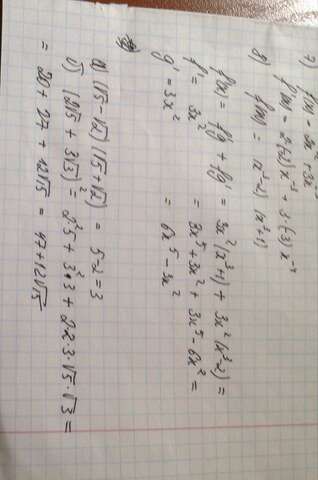 7) f(x) = 2x⁻² + 3x⁻³
f'(x) = 2·(-2)x⁻³ + 3·(-3)x⁻⁴
8) f(x) = (x³-2)(x³+1)
f'(x) = f'g + fg' = 3x²(x³+1) + 3x²(x³-2) =
f' = 3x² = 3x⁵ + 3x² + 3x⁵ - 6x² =
g' = 3x² = 6x⁵ - 3x²
а) (√5 - √2)(√5 + √2) = 5 - 2 = 3
б) (2√5 + 3√3)² = 2²·5 + 3²·3 + 2·2·3·√5·√3 =
= 20 + 27 + 12√15 = 47 + 12√15